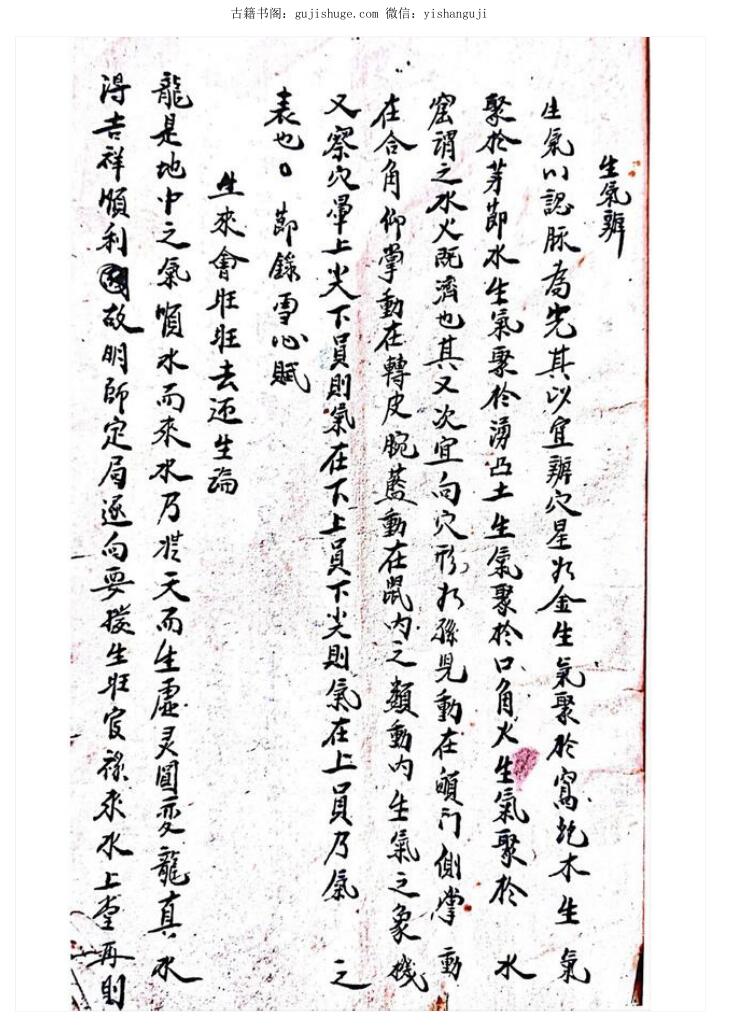 古籍书阁：gujishuge.com 微信：yishanguji
生氣辨
生氣以認脉為先其以宜辨穴星如金生氣聚於窩 木生氣
聚於芽節水生氣聚於湧凸土生氣聚於口角火生氣聚於 水
窟謂之水火既濟也其又次宜向穴形如孫児動在顖门側掌動
在合角仰掌動在轉皮腕 動在鼠内之類動内生氣之象機
又察穴暈上尖下員則氣在下上員下尖則氣在上員乃氣 之
表也。節錄雪心賦
生來會旺旺去迊生論
龍是地中之氣順水而來水乃 天而生虚灵圓变龍真水
淂吉祥順利 故明師定局逐向要撥生旺官祿來水上堂再則